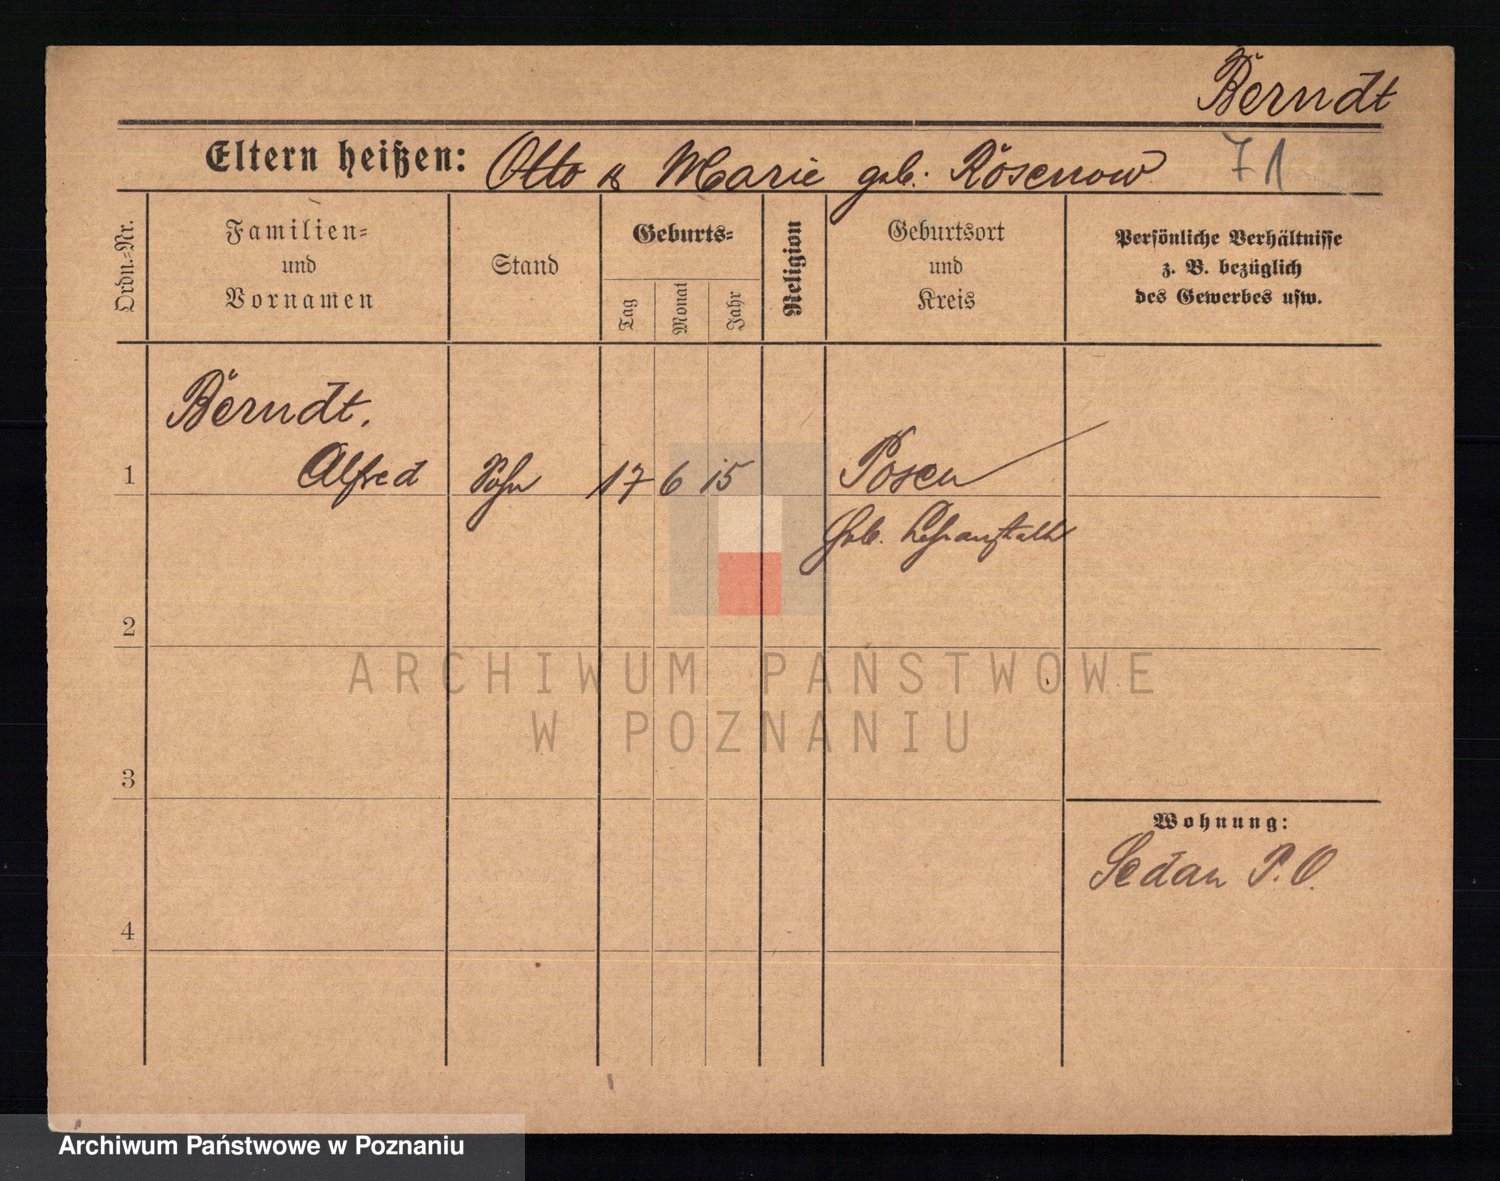 Berndt
Eltern heißen: Otto & Marie geb. Rosenow 71
Ordn.-Nr.
Familien-
und
Vornamen
Stand
Geburts-
Tag
Monat
Jahr
Religion
Geburtsort
und
Kreis
Persönliche Verhältnisse
z. B. bezüglich
des Gewerbes usw.
Berndt.
1 Alfred Sohn 17 6 15 Posen
Heb. Lehranstalt
2
ARCHIWUM PAŃSTWOWE
W POZNANIU
3
Wohnung:
Sedan P. O.
4
Archiwum Państwowe w Poznaniu